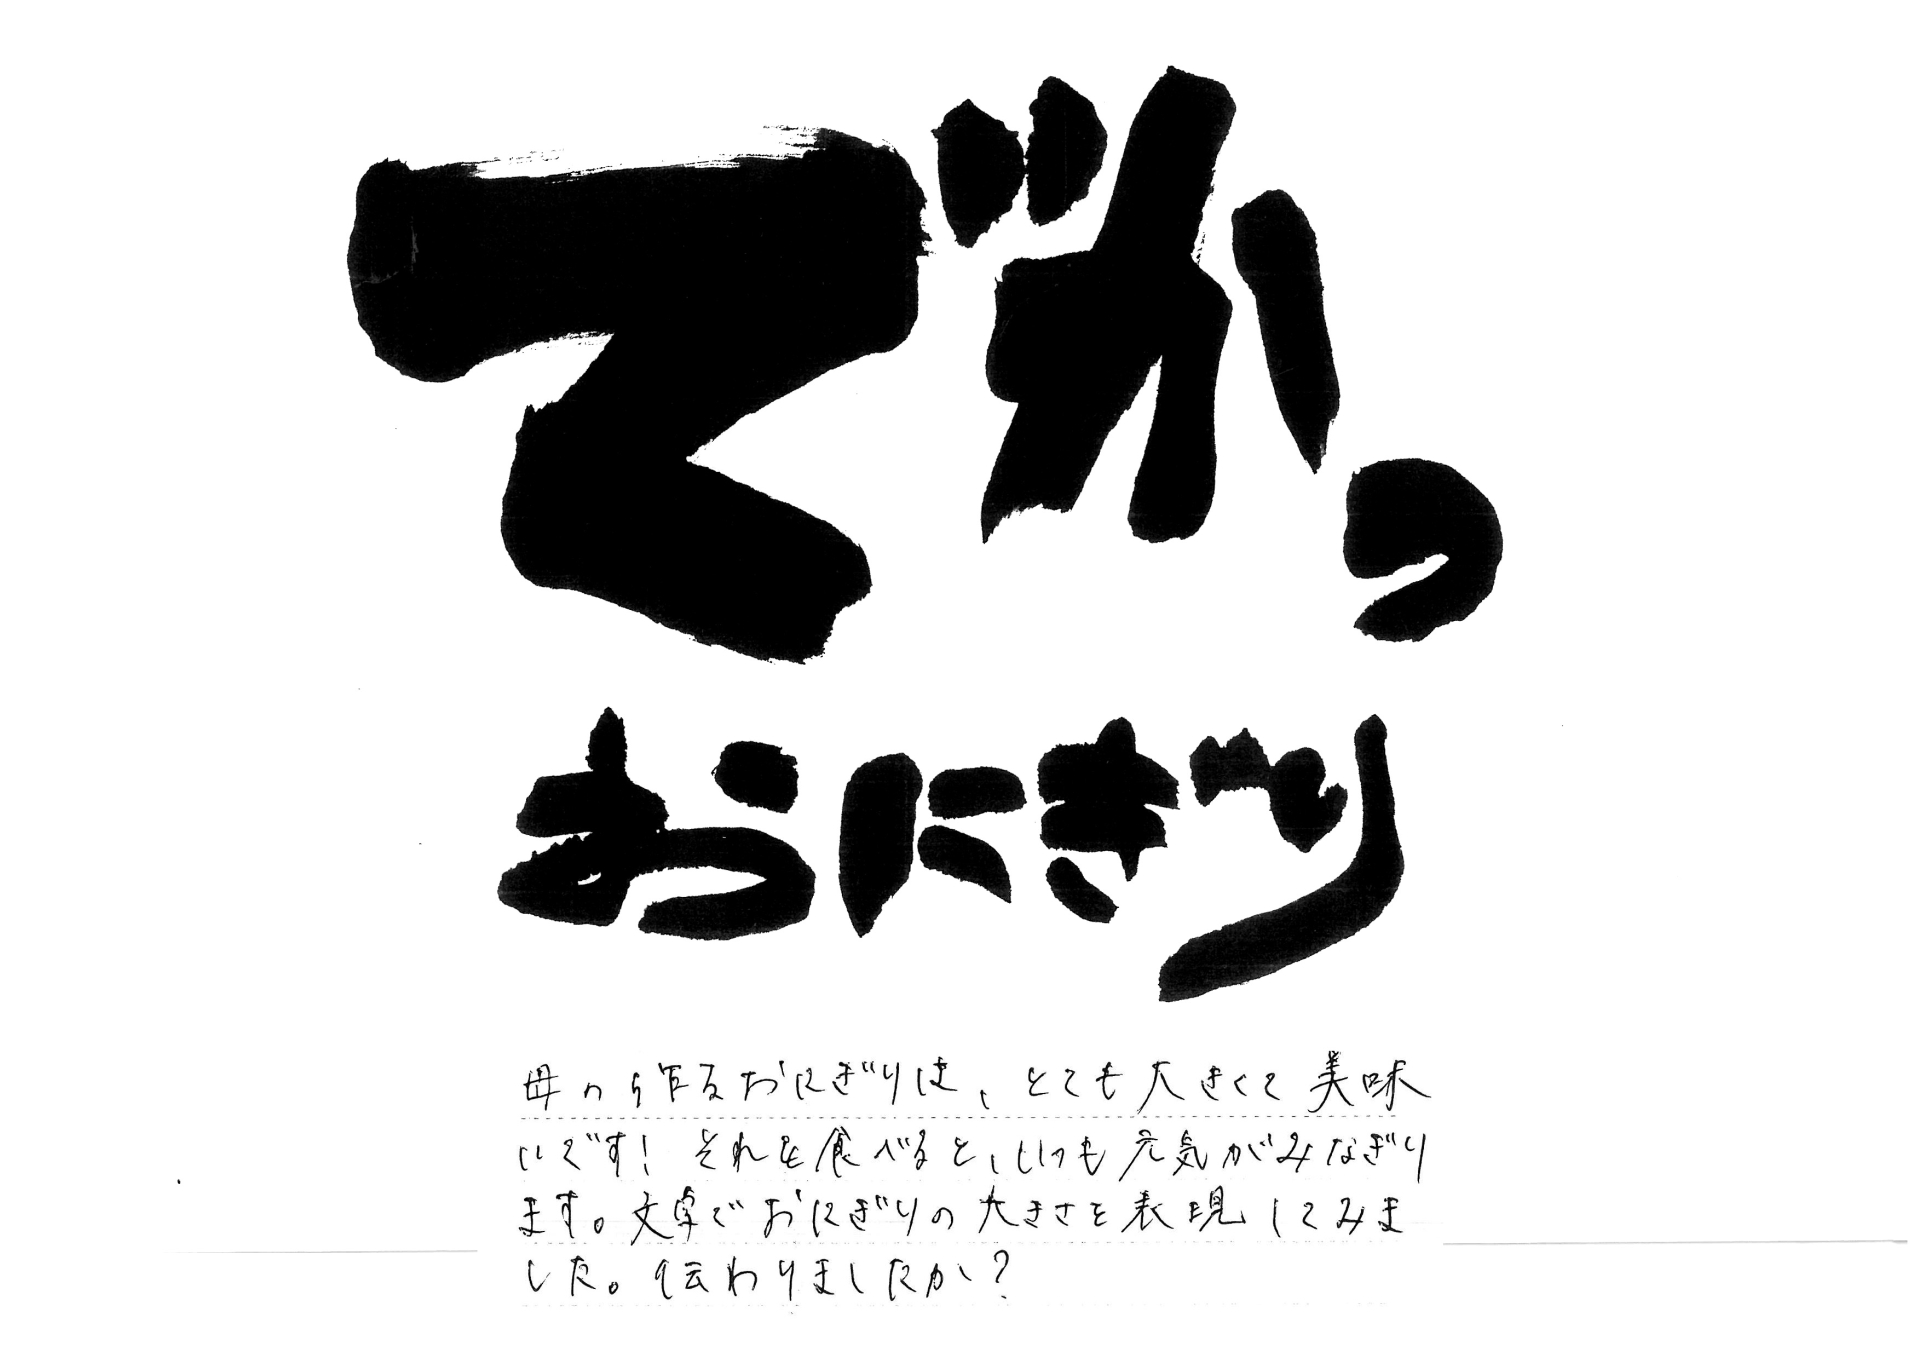 でかっ
おにぎり
母の作るおにぎりは、とても大きくて美味
いです！それを食べると、いつも元気がみなぎり
ます。文字でおにぎりの大きさを表現してみま
した。伝わりましたか？